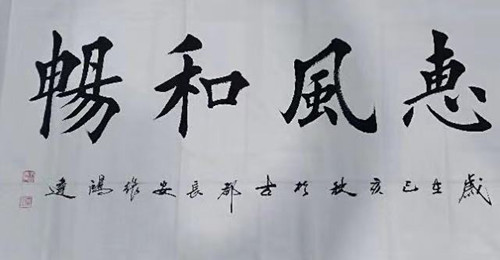 惠風和暢
歲在己亥秋於古都長安張鴻達